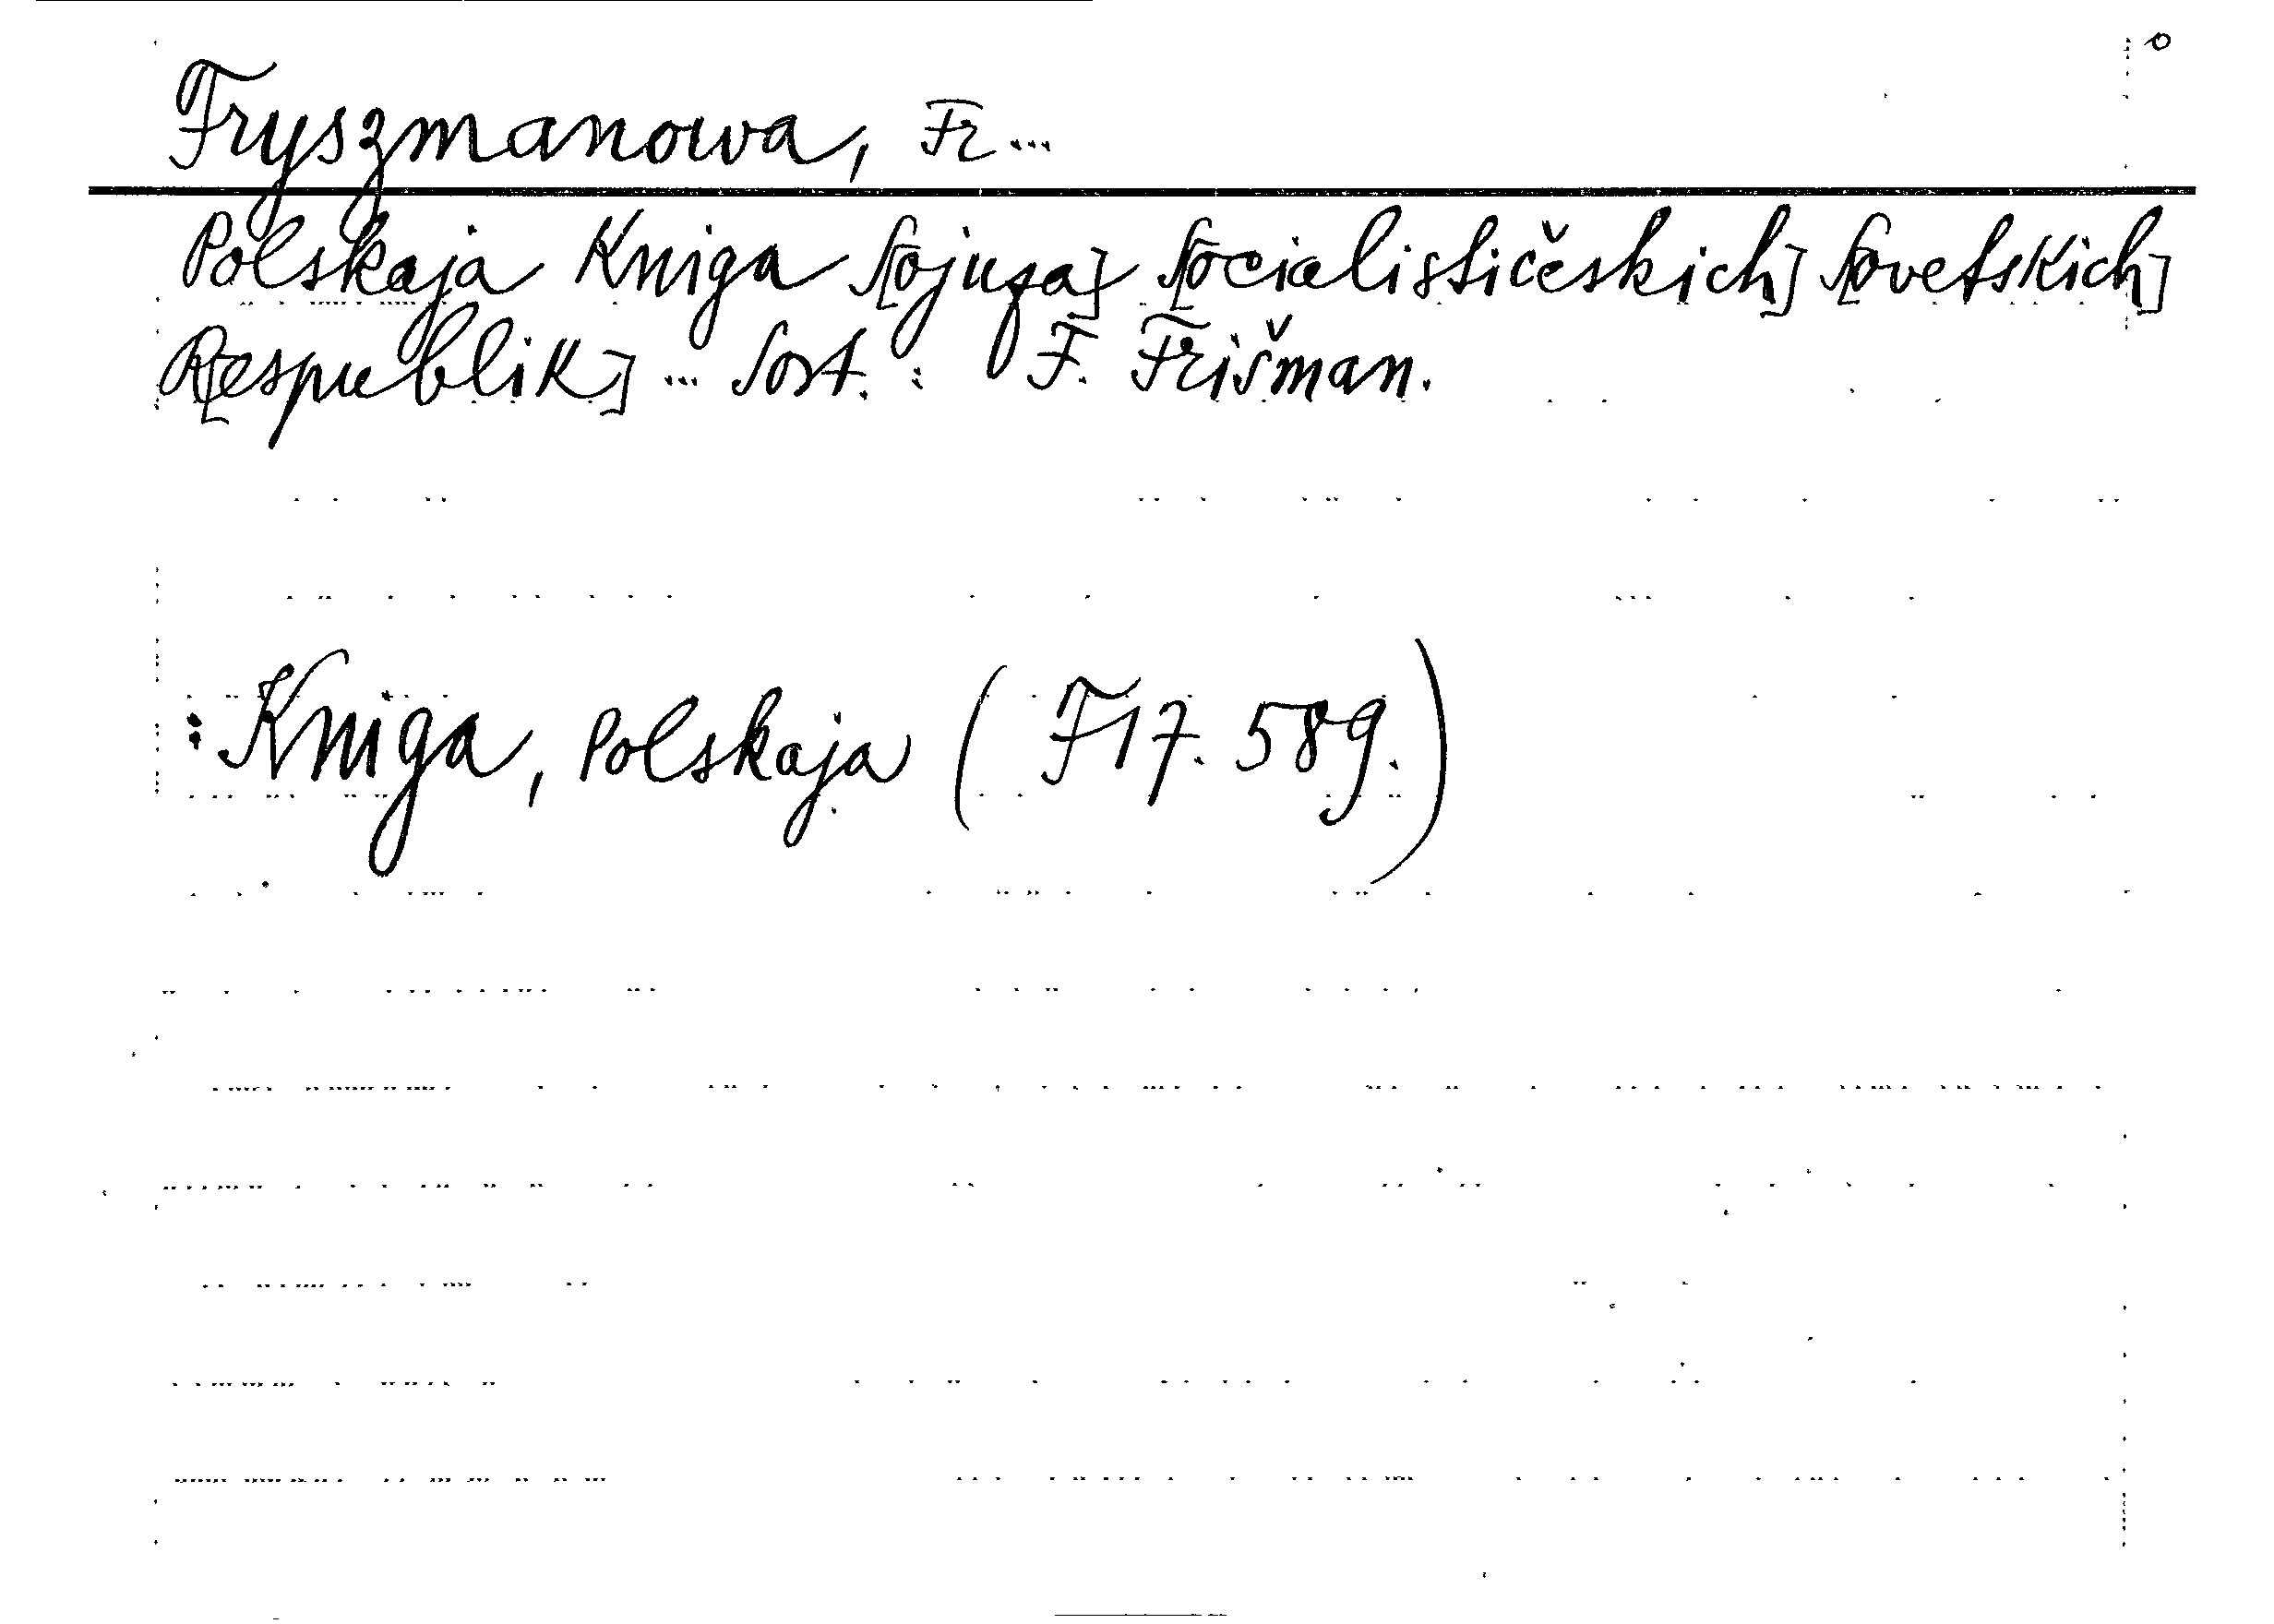 Fryszmanowa, Fr...
Polskaja Kniga S[ojuza] S[ocialističeskich] S[ovetskich]
R[espublik] ... Sost.: F. Frišman.
: Kniga, Polskaja (F17.589.)